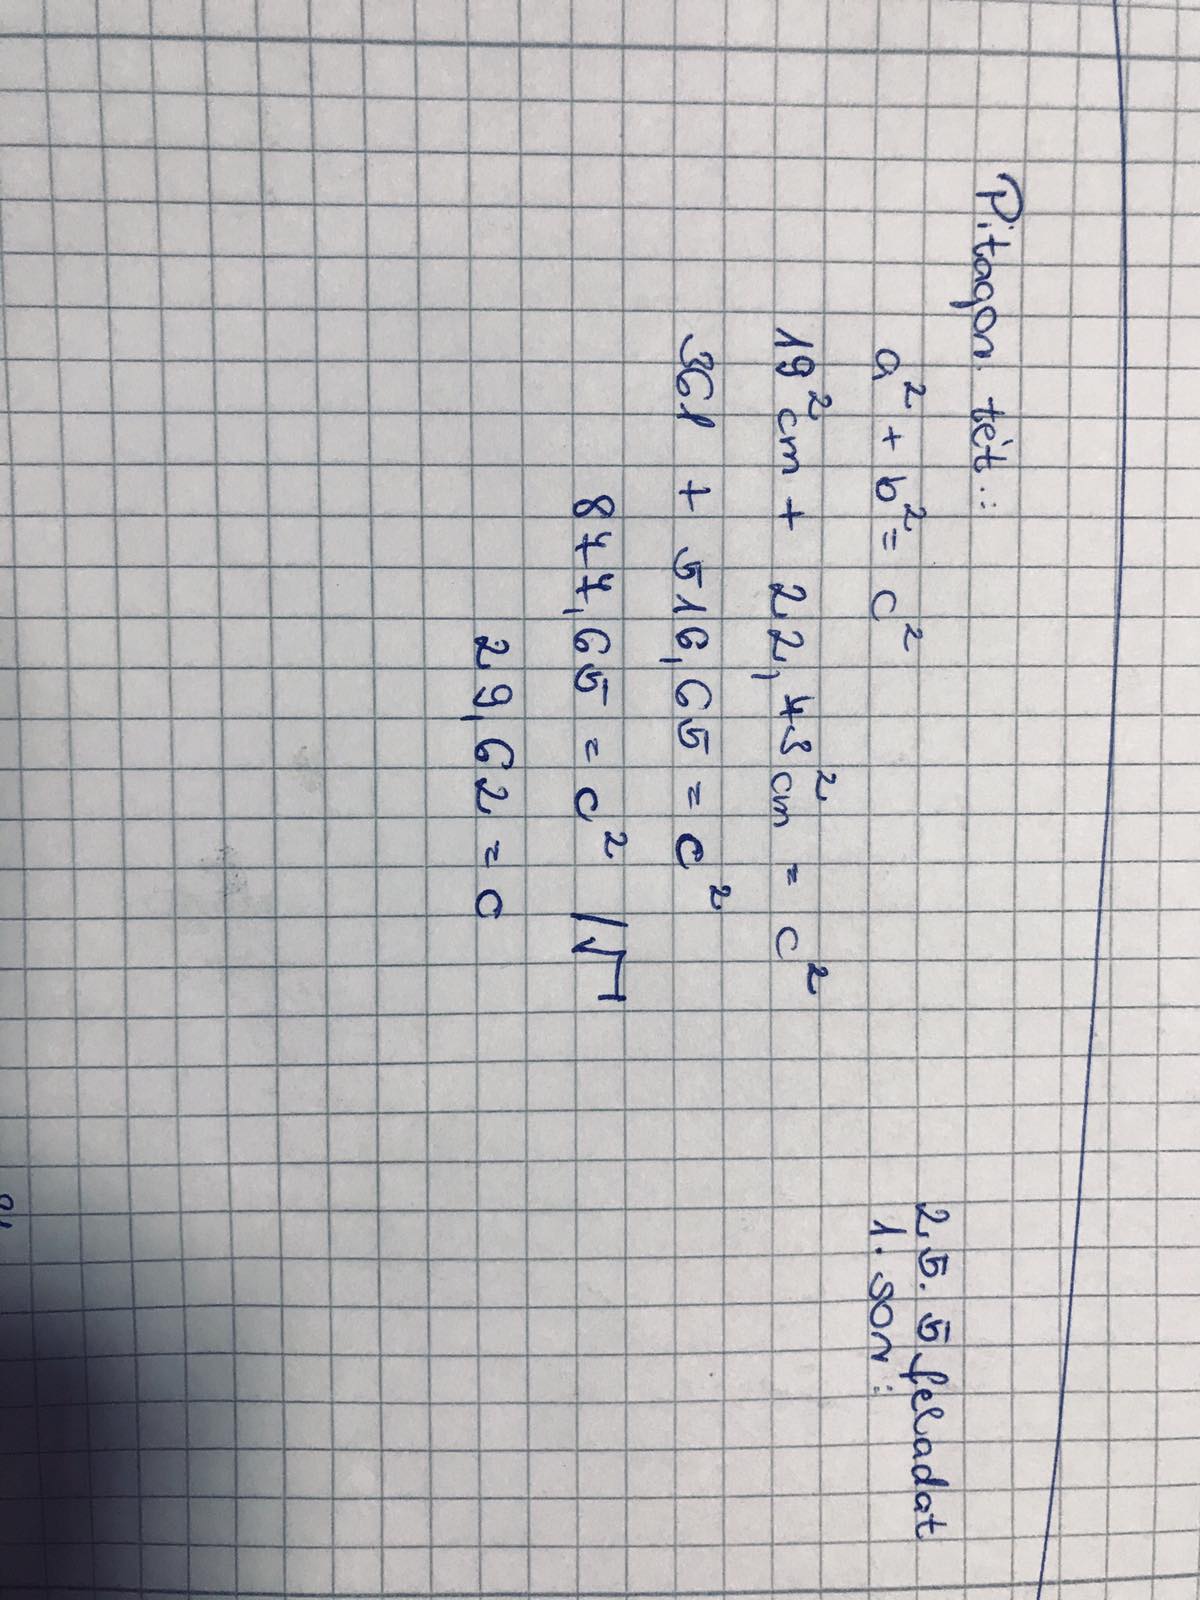 Pitagor. tét.:
a² + b² = c²
19² cm + 22,73² cm = c²
361 + 516,65 = c²
877,65 = c² /√
29,62 = c
2.5.5 feladat
1. sor: